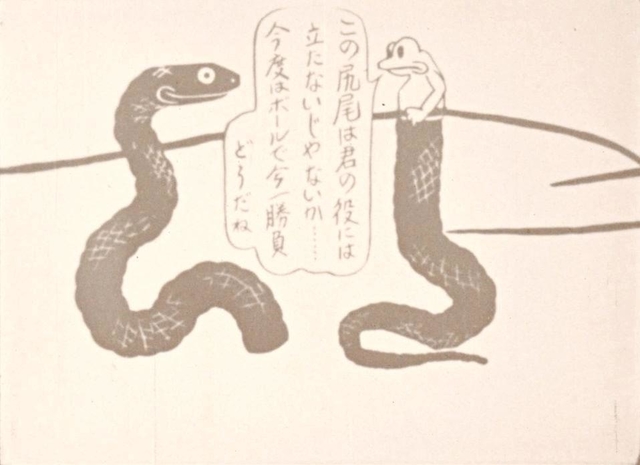 この尻尾は君の役には
立たないじゃないか……
今度はボールで今一勝負
どうだね